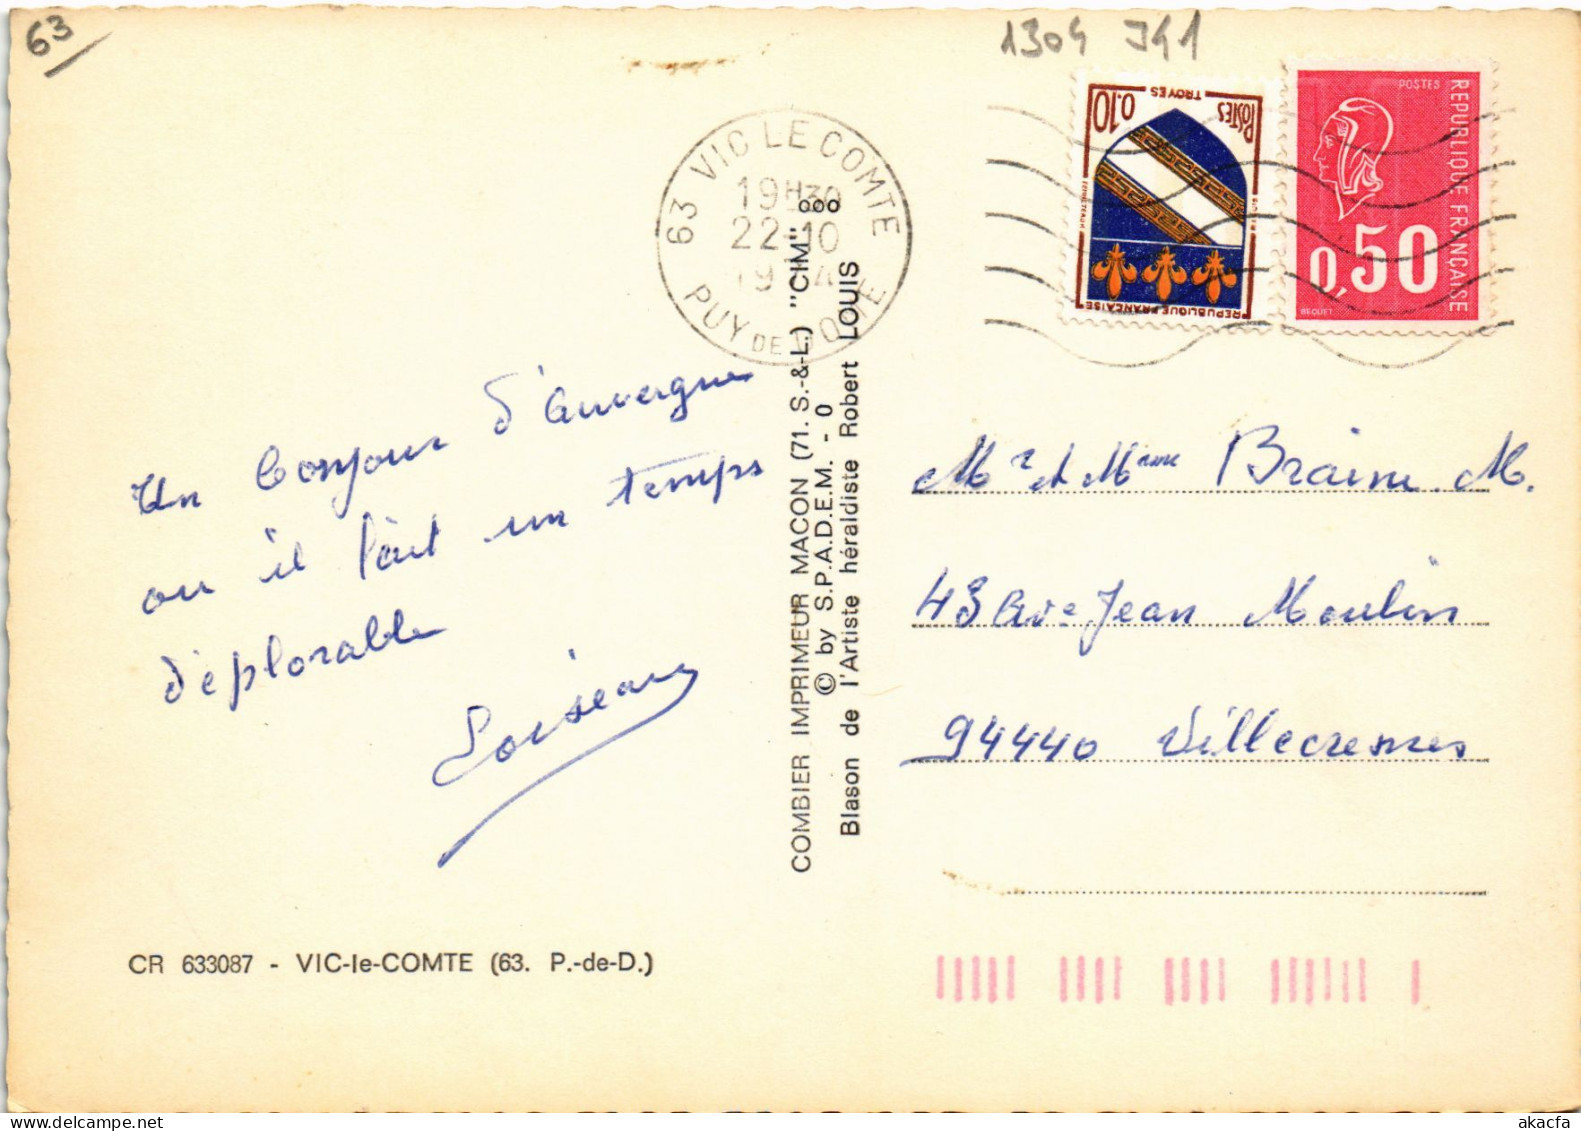 63
1304 J41
63 VIC LE COMTE
19H30
22-10
1974
PUY DE DOME
0.10
TROYES
POSTES
REPUBLIQUE FRANÇAISE
POSTES
REPUBLIQUE FRANÇAISE
0,50
BEQUET
Un bonjour d'Auvergne
ou il fait un temps
déplorable
Loiseau
COMBIER IMPRIMEUR MACON (71. S.-&-L.) "CIM" ooo
© by S.P.A.D.E.M. - O
Blason de l'Artiste héraldiste Robert LOUIS
Mr et Mme Braine M.
43 Ave Jean Moulin
94440 Villecresnes
CR 633087 - VIC-le-COMTE (63. P.-de-D.)
akacfa